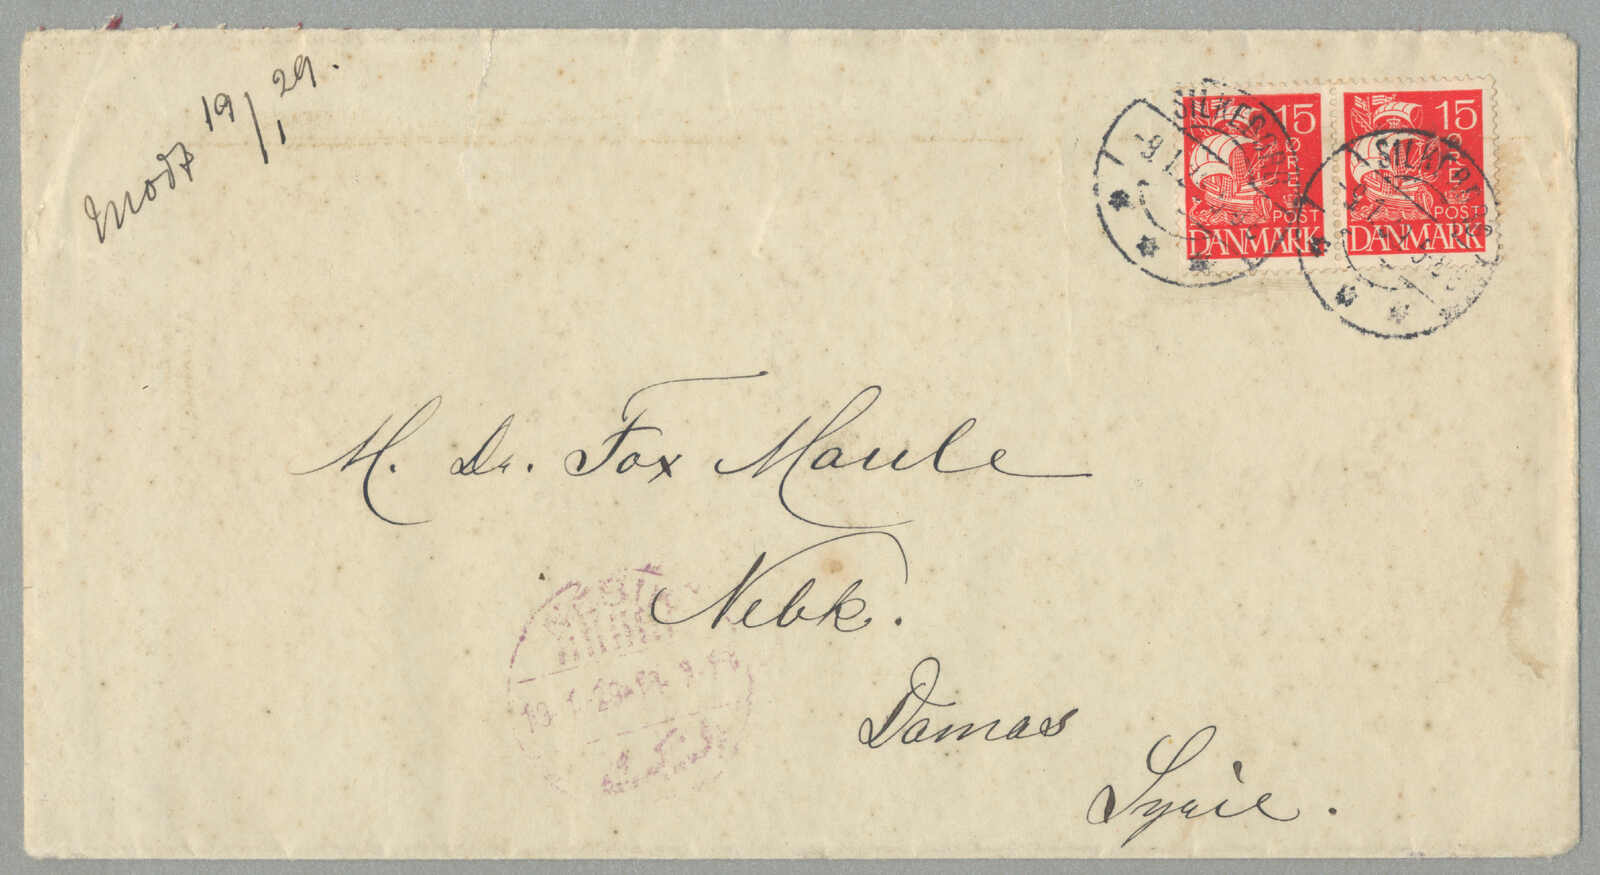 modt 19/1 29.
SILKEBORG
15
ØRE
POST
DANMARK
SILKEBORG
15
ØRE
POST
DANMARK
M. Dr. Fox Maule
Nebk.
Damas
Syrie.